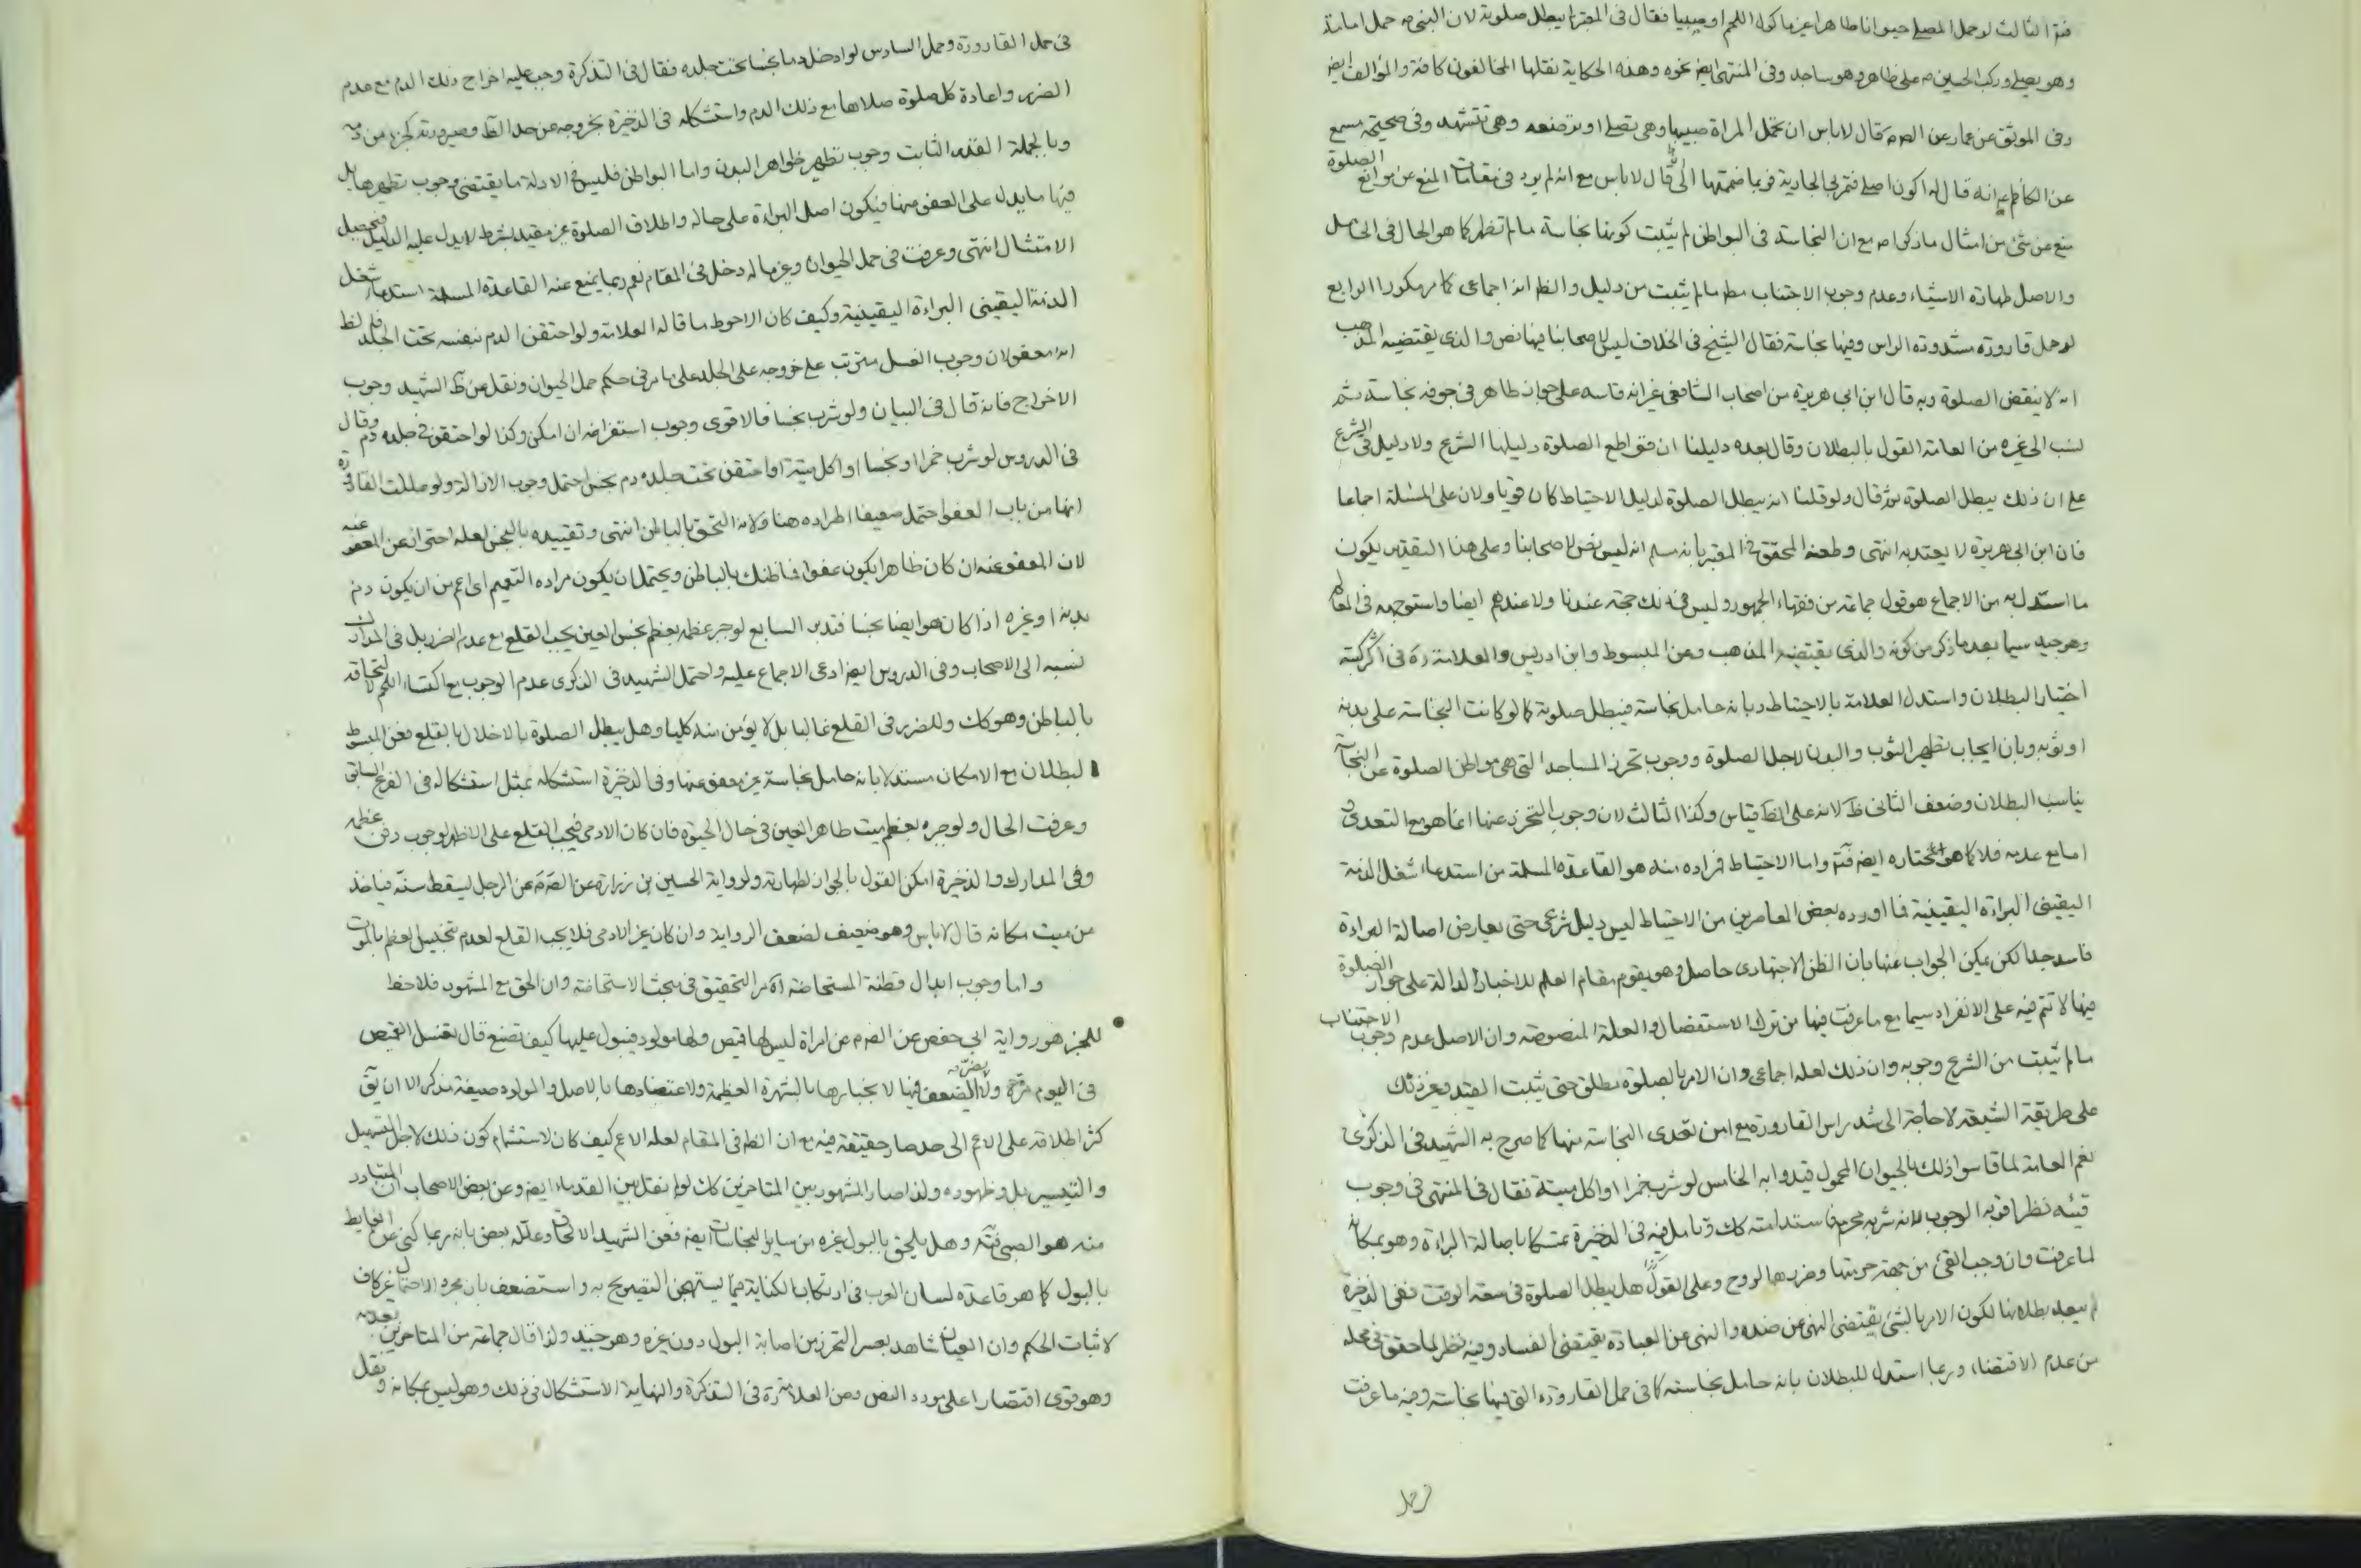 فتم الثالث لو حمل المصلي حيوانا طاهرا غير ماكول اللحم او صبيا فقال في المعتبر لا يبطل صلوته لان النبي ص حمل امامة
وهو يصلي وركب الحسين ص على ظاهره وهو ساجد وفي المنتهى ايض نحوه وهذه الحكاية نقلها المخالفون كافة والمؤالف ايض
وفي الموثق عن عمار عن الص م قال لا باس ان تحمل المراة صبيها وهي تصلي او ترضعه وهي تتشهد وفي صحيحة مسمع
عن الكاظم ع انه قال له اكون اصلي فتمر بي الجارية فربما ضممتها الي قال لا باس مع انه لم يرد في مقامات المنع عن موانع الصلوة
منع عن شئ من امثال ما ذكر اه مع ان النجاسة في البواطن لم يثبت كونها نجاسة ما لم تظهر كما هو الحال في الحامل
والاصل طهارة الاشياء وعدم وجوب الاجتناب مط ما لم يثبت من دليل والظ انه اجماعي كما مر مكررا الرابع
لو حمل قارورة مشدودة الراس وفيها نجاسة فقال الشيخ في الخلاف ليس لاصحابنا فيها نص والذي يقتضيه المذهب
انه لا ينقض الصلوة وبه قال ابن ابي هريرة من اصحاب الشافعي غير انه قاسه على حيوان طاهر في جوفه نجاسة ثم
نسب الى غيره من العامة القول بالبطلان وقال بعده دليلنا ان قواطع الصلوة دليلها الشرع ولا دليل في الشرع
على ان ذلك يبطل الصلوة ثم قال ولو قلنا انه يبطل الصلوة لدليل الاحتياط كان قويا ولان على المسئلة اجماعا
فان ابن ابي هريرة لا يعتد به انتهى وطعنه المحقق في المعتبر بانه سلم انه ليس نص لاصحابنا وعلى هذا التقدير يكون
ما استدل به من الاجماع هو قول جماعة من فقهاء الجمهور وليس في ذلك حجة عندنا ولا عندهم ايضا واستوجهه في المعالم
وهو جيد سيما بعد ما ذكر من كونه والذي يقتضيه المذهب وعن المبسوط وابن ادريس والعلامة ره في اكثر كتبه
اختيار البطلان واستدل العلامة بالاحتياط وبانه حامل نجاسة فيبطل صلوته كما لو كانت النجاسة على بدنه
او ثوبه وبان ايجاب تطهير الثوب والبدن لاجل الصلوة ووجوب تحرز المساجد التي هي مواطن الصلوة عن النجاسة
يناسب البطلان وضعف الثاني ظ لانه على الظ قياس وكذا الثالث لان وجوب التحرز عنها انما هو مع التعدي
اما مع عدمه فلا كما هو مختاره ايض فتم واما الاحتياط فمراده منه هو القاعدة المسلمة من استدعاء شغل الذمة
اليقيني البراءة اليقينية فما اورده بعض المعاصرين من الاحتياط ليس دليل شرعي حتى يعارض اصالة البراءة
فاسد جدا لكن يمكن الجواب عنها بان الظن الاجتهادي حاصل وهو يقوم مقام العلم للاخبار الدالة على جواز الصلوة
فيما لا تتم فيه على الانفراد سيما مع ما عرفت فيها من ترك الاستفصال والعلة المنصوصة وان الاصل عدم وجوب الاجتناب
ما لم يثبت من الشرع وجوبه وان ذلك لعله اجماعي وان الامر بالصلوة مطلق حتى يثبت القيد وغير ذلك
على طريقة الشيعة لا حاجة الى شد راس القارورة مع امن تعدي النجاسة منها كما صرح به الشهيد في الذكرى
نعم العامة لما قاسوا ذلك بالحيوان المحمول قيدوا به الخامس لو شرب خمرا او اكل ميتة فقال في المنتهى في وجوب
قيئه نظر اقربه الوجوب لانه شربه محرم فاستدامته كك وتامل فيه في الذخيرة تمسكا باصالة البراءة وهو بمكانه
لما عرفت وان وجب القئ من جهة حرمتها وضررها الروح وعلى القول هل يبطل الصلوة في سعة الوقت ففي الذخيرة
لم يبعد بطلانها لكون الامر بالشئ يقتضي النهي عن ضده والنهي عن العبادة يقتضي الفساد وفيه نظر لما حقق في محله
من عدم الاقتضاء وربما استدل للبطلان بانه حامل نجاسته كما في حمل القارورة التي فيها نجاسة وفيه ما عرفت
في حمل القارورة وحمل السادس لو ادخل دما نجسا تحت جلده فقال في التذكرة وجب عليه اخراج ذلك الدم مع عدم
الضرر واعادة كل صلوة صلاها مع ذلك الدم واستشكله في الذخيرة بخروجه عن حد الظ وصيرورته كجزء من دمه
وبالجملة القدر الثابت وجوب تطهير ظواهر البدن واما البواطن فليس في الادلة ما يقتضي وجوب تطهيرها بل
فيها ما يدل على العفو عنها فيكون اصل البراءة على حاله واطلاق الصلوة غير مقيد بشرط لا يدل عليه الدليل فيحصل
الامتثال انتهى وعرفت في حمل الحيوان وغيره ما له دخل في المقام نعم ربما يمنع عنه القاعدة المسلمة استدعاء شغل
الذمة اليقيني البراءة اليقينية وكيف كان الاحوط ما قاله العلامة ولو احتقن الدم بنفسه تحت الجلد فالظ
انه معفو لان وجوب الغسل مترتب على خروجه على الجلد على ما مر في حكم حمل الحيوان ونقل عن ظ الشهيد وجوب
الاخراج فانه قال في البيان ولو شرب نجسا فالاقوى وجوب استفراغه ان امكن وكذا لو احتقن في جلده دم وقال
في الدروس لو شرب خمرا او نجسا او اكل ميتة او احتقن تحت جلده دم نجس احتمل وجوب الازالة ولو عللت القارورة
انها من باب العفو احتمل ضعيفا اطراده هنا ولانه التحق بالباطن انتهى وتقييده بالنجس لعله احترازعن المعفو عنه
لان المعفو عنه ان كان ظاهرا يكون عفوا فما ظنك بالباطن ويحتمل ان يكون مراده التعميم اي اعم من ان يكون دم
بدنه او غيره اذا كان هو ايضا نجسا فتدبر السابع لو جبر عظمه بعظم نجس العين يجب القلع مع عدم الضرر بل في المدارك
نسبه الى الاصحاب وفي الدروس ايض ادعى الاجماع عليه واحتمل الشهيد في الذكرى عدم الوجوب مع اكتساء اللحم لالتحاقه
بالباطن وهو كك وللضرر في القلع غالبا بل لا يؤمن منه كليا وهل يبطل الصلوة بالاخلال بالقلع فعن المبسوط
البطلان مع الامكان مستدلا بانه حامل نجاسة غير معفو عنها وفي الذخيرة استشكله بمثل استشكاله في الفرع السابق
وعرفت الحال ولو جبره بعظم ميت طاهر العين في حال الحيوة فان كان الادمي فيجب القلع على الاظهر لوجوب دفن عظمه
وفي المدارك والذخيرة امكن القول بالجواز لطهارته ولرواية الحسين بن زرارة عن الص م عن الرجل يسقط سنه فياخذ
من ميت مكانه قال لا باس وهو ضعيف لضعف الرواية وان كان غير الادمي فلا يجب القلع لعدم تنجيس العظم بالموت
واما وجوب ابدال قطنة المستحاضة اه مر التحقيق في مبحث الاستحاضة وان الحق مع المشهور فلاحظ
للخبر هو رواية ابي حفص عن الص م عن امراة ليس لها قميص ولها مولود فيبول عليها كيف تصنع قال تغسل القميص
في اليوم مرة ولا يضر الضعف فيها لانجبارها بالشهرة العظيمة ولاعتضادها بالاصل والمولود صيغة مذكر الا ان يق
كثر اطلاقه على الاعم الى حد صار حقيقة فيه مع ان الظ في المقام لعله الاعم كيف كان لاستشمام كون ذلك لاجل التسهيل
والتيسير بل وظهوره ولذا صار المشهور بين المتاخرين كك لو لم نقل بين القدماء ايض وعن بعض الاصحاب ان المتبادر
منه هو الصبي فتم وهل يلحق بالبول غيره من ساير النجاسات ايض فعن الشهيد الالحاق وعلله بعض بانه ربما كنى عن الغايط
بالبول كما هو قاعدة لسان العرب في ارتكاب الكناية فيما يستهجن التصريح به واستضعف بان مجرد الاحتمال غير كاف
لاثبات الحكم وان العيان شاهد بعسر التحرز من اصابة البول دون غيره وهو جيد ولذا قال جماعة من المتاخرين بعدمه
وهو قوي اقتصارا على مورد النص وعن العلامة ره في التذكرة والنهاية الاستشكال في ذلك وهو ليس بمكانه ونقل